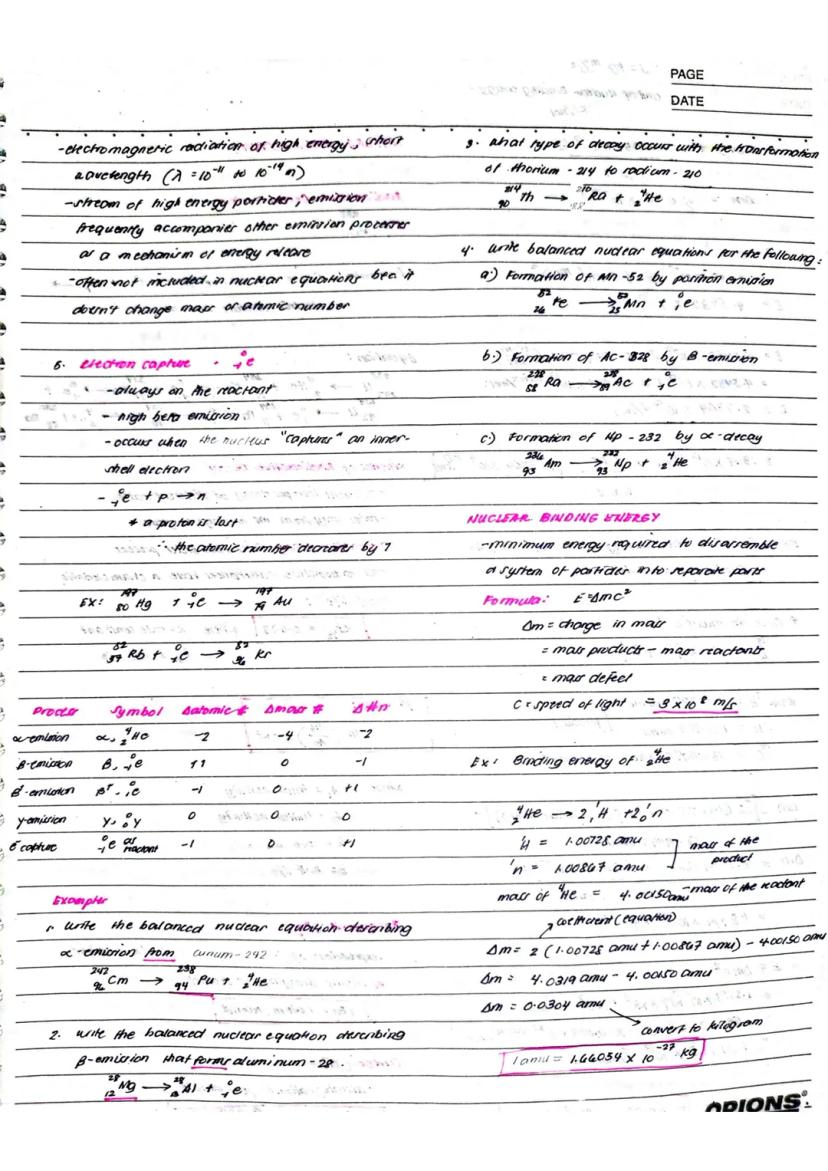 PAGE
DATE
-electromagnetic radiation of high energy, short
wavelength (λ = 10⁻¹¹ to 10⁻¹⁴ n)
-stream of high energy particles; emission
frequently accompanies other emission processes
as a mechanism of energy release
-often not included in nuclear equations bec it
doesn't change mass or atomic number
6. electron capture - ⁰₋₁e
-always on the reactant
- high beta emission
-occurs when the nucleus "captures" an inner-
shell electron
- ⁰₋₁e + p → n
* a proton is lost
∴ the atomic number decreases by 1
EX: ¹⁹⁷₈₀Hg + ⁰₋₁e → ¹⁹⁷₇₉Au
⁸²₃₇Rb + ⁰₋₁e → ⁸²₃₆Kr
Process Symbol Δatomic # Δmass # Δ #n
α-emission α, ⁴₂He -2 -4 -2
β-emission β, ⁰₋₁e +1 0 -1
β⁺-emission β⁺, ⁰₁e -1 0 +1
γ-emission γ, ⁰₀γ 0 0 0
e⁻ capture ⁰₋₁e as reactant -1 0 +1
Examples
1. Write the balanced nuclear equation describing
α-emission from curium-242
²⁴²₉₆Cm → ²³⁸₉₄Pu + ⁴₂He
2. write the balanced nuclear equation describing
β-emission that forms aluminum-28.
²⁸₁₂Mg → ²⁸₁₃Al + ⁰₋₁e
3. What type of decay occurs with the transformation
of thorium-214 to radium-210
²¹⁴₉₀Th → ²¹⁰₈₈Ra + ⁴₂He
4. Write balanced nuclear equations for the following:
a.) Formation of Mn-52 by positron emission
⁵²₂₆Fe → ⁵²₂₅Mn + ⁰₁e
b.) Formation of Ac-228 by B-emission
²²⁸₈₈Ra → ²²⁸₈₉Ac + ⁰₋₁e
c.) Formation of Np-232 by α-decay
²³⁶₉₅Am → ²³²₉₃Np + ⁴₂He
NUCLEAR BINDING ENERGY
-minimum energy required to disassemble
a system of particles into separate parts
Formula: E=Δmc²
Δm = change in mass
= mass products - mass reactants
= mass defect
C = speed of light = 3 x 10⁸ m/s
Ex: Binding energy of ⁴₂He
⁴₂He → 2¹₁H + 2¹₀n
¹H = 1.00728 amu
mass of the
product
¹n = 1.00867 amu
mass of ⁴He = 4.00150amu -mass of the reactant
coefficient (equation)
Δm = 2 (1.00728 amu + 1.00867 amu) - 4.00150 amu
Δm = 4.0319 amu - 4.00150 amu
Δm = 0.0304 amu
convert to kilogram
1 amu = 1.66054 x 10⁻²⁷ kg
ORIONS